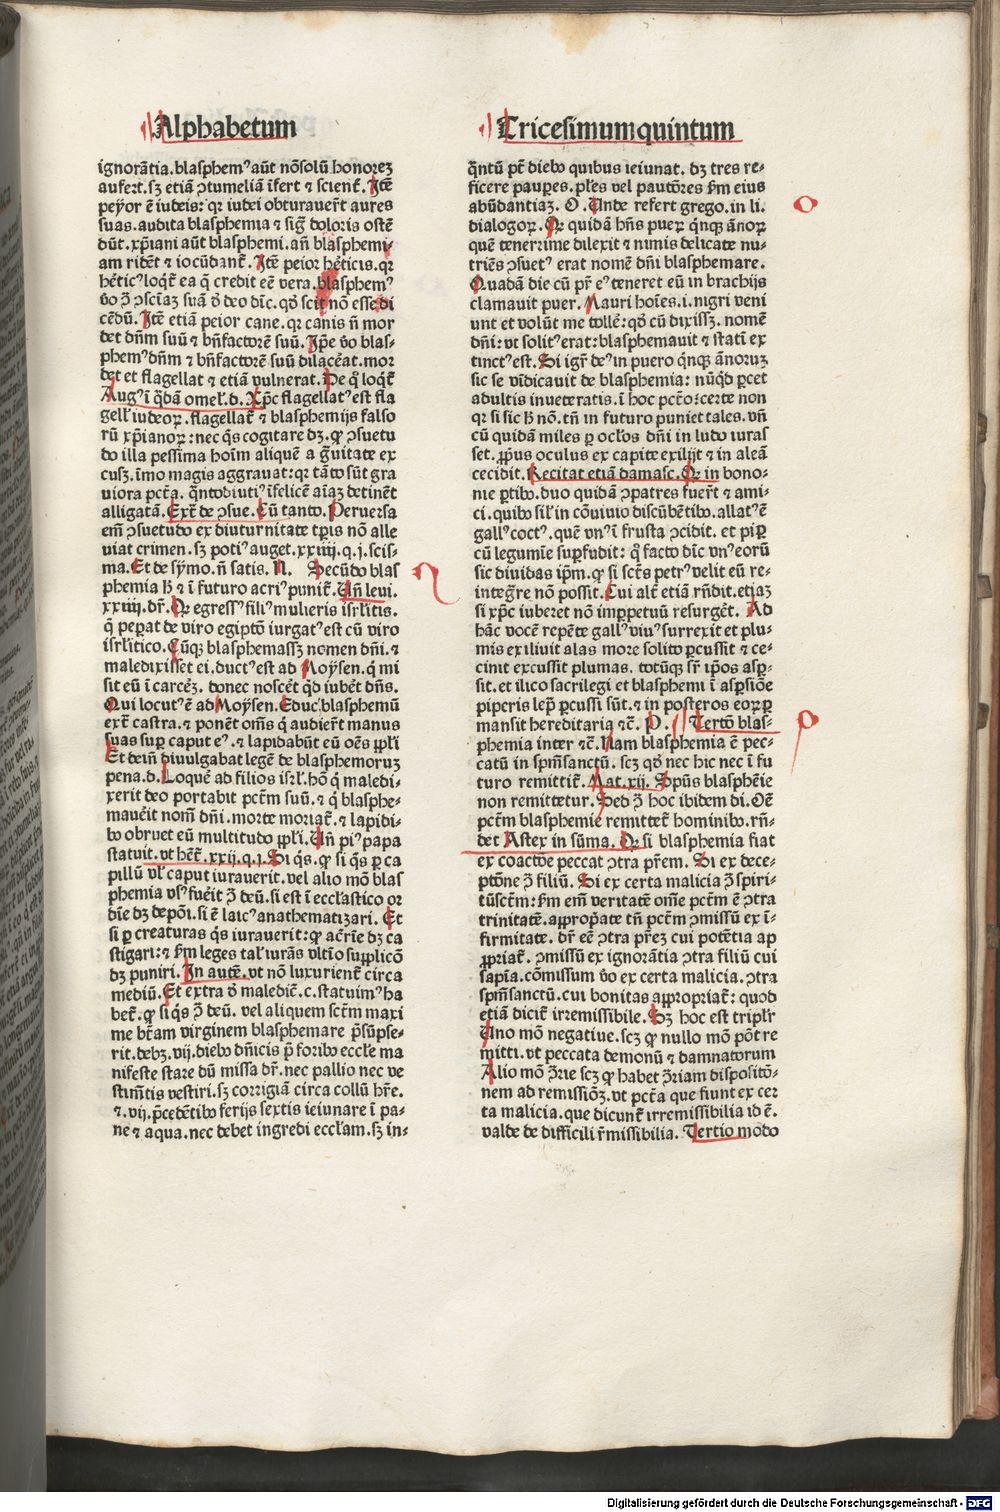 Alphabetum
ignorãtia.blasphemꝰ aũt nõsolũ honoreȝ
aufert.sȝ etiã ꝯtumeliã ĩfert ⁊ scienť. Itẽ
peyor ẽ iudeis: qꝛ iudei obturaverťt aures
suas.audita blasphemia ⁊ sigᷓ doloris ostẽ
dũt. xp̃iani aũt blasphemi.añ blasphemi-
am ridẽt ⁊ iocũdanť. Itẽ peior hẽticis.qꝛ
hẽticꝰ loq̃ť ea q̃ credit eẽ vera.blasphemꝰ
ṽo ꝫ̃ ꝯsciaȝ suã ð deo dĩc.qð scit nõ esse di
cẽdũ. Itẽ etiã peior cane.qꝛ canis ñ mor
det dñm suũ ⁊ bñfactorẽ suũ. Ip̃e ṽo blas-
phemꝰ dñm ⁊ bñfactorẽ suũ dilac̃eat.mor
det et flagellat ⁊ etiã vulnerat. De q̃ loq̃ť
Augꝰ ĩ q̃dã omeł.d. Xp̃c flagellatꝰ est fla
gelł iudeoꝝ.flagellať ⁊ blasphemijs falso
rũ xp̃ianoꝝ:nec q̃s cogitare dȝ.ꝙ ꝯsuetu
do illa pessima hoĩm aliquẽ a g̃uitate ex
cusȝ.ĩmo magis aggravat:qꝛ tãto sũt gra
viora pctã. q̃ntodiutiꝰ ĩfelicẽ aĩaȝ detinẽt
alligatã. Exť de ꝯsue. Cũ tanto. Perversa
em̃ ꝯsuetudo ex diuturnitate tp̃is nõ alle
viat crimen.sȝ potiꝰ auget.xxiiij.q.j.scis-
ma. Et de sỹmo.ñ satis. N. Secũdo blas
phemia ħ ⁊ ĩ futuro acriꝰ puniť. Uñ levi.
xxiiij.dř. Qꝛ egressꝰ filiꝰ mulieris isrłitis.
q̃ pep̃at de viro egiptõ iurgatꝰ est cũ viro
isrłitico. Cũqȝ blasphemassȝ nomen dñi.⁊
maledixisset ei.ductꝰ est ad Moysen.q̃ mi
sit eũ ĩ carcẽȝ. donec noscẽt q̃d iubẽt dñs.
Qui locutꝰ ẽ ad Moysen. Educ blasphemũ
exť castra.⁊ ponẽt om̃s q̃ audierťt manus
suas suꝑ caput eꝰ.⁊ lapidabũt eũ oẽs ꝓpłi
Et deiñ divulgabat legẽ de blasphemoruȝ
pena.d. Loquẽ ad filios isrł.hõ q̃ maledi-
xerit deo portabit pctm̃ suũ.⁊ q̃ blasphe-
maṽeit nom̃ dñi.morte moriať.⁊ lapidi-
bꝰ obruet eũ multitudo ꝓpłi. Uñ piꝰ papa
statuit.vt hẽť.xxij.q.j. Si q̃s.ꝙ si q̃s ꝑ ca
pillũ vł caput iuraverit.vel alio mõ blas
phemia vsꝰ fũeit ꝫ̃ deũ:si est ĩ eccłastico or
dĩe dȝ depõi.si ẽ laicꝰ anathematizari. Et
si ꝑ creaturas q̃s iuraverit:ꝙ ac̃rie dȝ ca
stigari:⁊ ẜm leges tał iurãs vltĩo supplicõ
dȝ puniri. In autẽ.vt nõ luxurienť circa
mediũ. Et extra ð maledic̃.c.statuimꝰ ha
beť.ꝙ si q̃s ꝫ̃ deũ.vel aliquem scťm maxi
me bťam virginem blasphemare p̃sũpse-
rit.debȝ.vij.diebꝰ dñicis p̃ foribꝰ eccłe ma
nifeste stare dũ missa dř.nec pallio nec ve
stim̃tis vestiri.sȝ corrigiã circa collũ hře.
⁊.vij.p̃cedẽtibꝰ ferijs sextis ieiunare ĩ pa-
ne ⁊ aqua.nec debet ingredi eccłam.sȝ in-
n
Tricesimumquintum
q̃ntũ pť diebꝰ quibus ieiunat. dȝ tres re-
ficere pauꝑes.płes vel pautõres ẜm eius
abũdantiaȝ. O. Unde refert grego.in li.
dialogoꝝ. Qꝛ quidã hñs pueꝝ q̃nqȝ ãnoꝝ
quẽ tenerrime dilexit ⁊ nimis delicate nu-
triẽs ꝯsuetꝰ erat nomẽ dñi blasphemare.
Quadã die cũ př eꝰ teneret eũ in brachijs
clamavit puer. Mauri hoĩes.i.nigri veni
unt et volũt me tollẽ:qð cũ dixissȝ.nomẽ
dñi:vt solitꝰ erat:blasphemavit ⁊ statĩ ex
tinctꝰ est. Si igr̃ deꝰ in puero q̃nqȝ ãnoruȝ
sic se vĩdicavit de blasphemia: nũq̃d ꝑcet
adultis inveteratis.ĩ hoc pctõ:certe non
qꝛ si sic ħ nõ.tñ in futuro puniet tales. vñ
cũ quidã miles ꝑ ocłos dñi in ludo iuras
set.ꝓpꝰus oculus ex capite exilijt ⁊ in aleã
cecidit. Recitat etiã damasc. Qꝛ in bono-
nie ꝑtibꝰ.duo quidã ꝯpatres fuerťt ⁊ ami-
ci.quibꝰ sił in cõvivio discũbẽtibꝰ.allatꝰ ẽ
gallꝰ coctꝰ.quẽ vnꝰ ĩ frusta ꝯcidit. et piꝑ
cũ legumĩe suꝑfudit: q̃ facto dĩc vnꝰ eorũ
sic dividas ip̃m.ꝙ si scťs petrꝰ velit eũ re-
integr̃e nõ possit. Cui alť etiã rñdit.etiaȝ
si xp̃c iuberet nõ imꝑpetuũ resurgẽt. Ad
hãc vocẽ repẽte gallꝰ vivꝰ surrexit et plu-
mis exilivit alas more solito ꝑcussit ⁊ ce-
cinit excussit plumas. totũqȝ sř ip̃os asꝑ-
sit.et ilico sacrilegi et blasphemi ĩ asꝑsiõe
piperis lep̃ ꝑcussi sũt.⁊ in posteros eoꝝ ꝑ
mansit hereditaria ⁊c̃. P. Tertõ blas-
phemia inter ⁊c̃. Nam blasphemia ẽ pec-
catũ in spm̃sanctũ. scȝ qð nec hic nec ĩ fu
turo remittiť. Mat.xij. Spũs blasphẽie
non remittetur. Sed ꝫ̃ hoc ibidem di. Oẽ
pctm̃ blasphemie remitteť hominibꝰ.rñ-
det Astex in sũma. Qꝛ si blasphemia fiat
ex coactõe peccat ꝯtra přem. Si ex dece-
ptõne ꝫ̃ filiũ. Si ex certa malicia ꝫ̃ spiri-
tũsctm̃:ẜm em̃ veritatẽ om̃e pctm̃ ẽ ꝯtra
trinitatẽ.apꝓp̃ate tñ pctm̃ ꝯmissũ ex ĩ-
firmitate. dř eẽ ꝯtra přeȝ cui potẽtia ap
ꝓpriať. ꝯmissũ ex ignorãtia ꝯtra filiũ cui
sapĩa.cõmissum ṽo ex certa malicia. ꝯtra
spm̃sanctũ.cui bonitas apꝓpriať: quod
etiã diciť irremissibile. Sȝ hoc est tripłr
Uno mõ negative.scȝ ꝙ nullo mõ põt re
mitti.vt peccata demonũ ⁊ damnatorum
Alio mõ ꝫ̃rie scȝ ꝙ habet ꝫ̃riam dispositõ-
nem ad remissiõȝ.vt pctã que fiunt ex cer
ta malicia.que dicunť irremissibilia id ẽ.
valde de difficili ř̃missibilia. Tertio modo
o
p
Digitalisierung gefördert durch die Deutsche Forschungsgemeinschaft - DFG